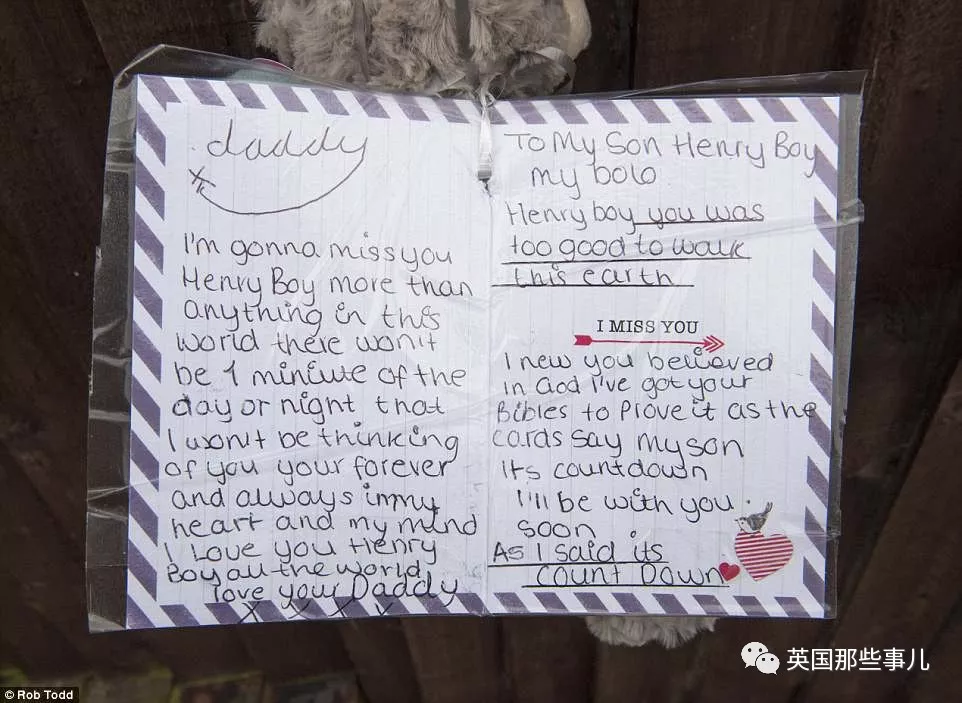 daddy
I'm gonna miss you
Henry Boy more than
anything in this
world there won't
be 1 miniute of the
day or night that
I won't be thinking
of you your forever
and always in my
heart and my mind
I Love you Henry
Boy all the world
love your Daddy
x x x x
To My Son Henry Boy
my bolo
Henry boy you was
too good to walk
this earth
I MISS YOU
I new you believed
in God I've got your
Bibles to prove it as the
cards say my son
Its countdown
I'll be with you
soon
As I said its
count Down
英国那些事儿
© Rob Todd